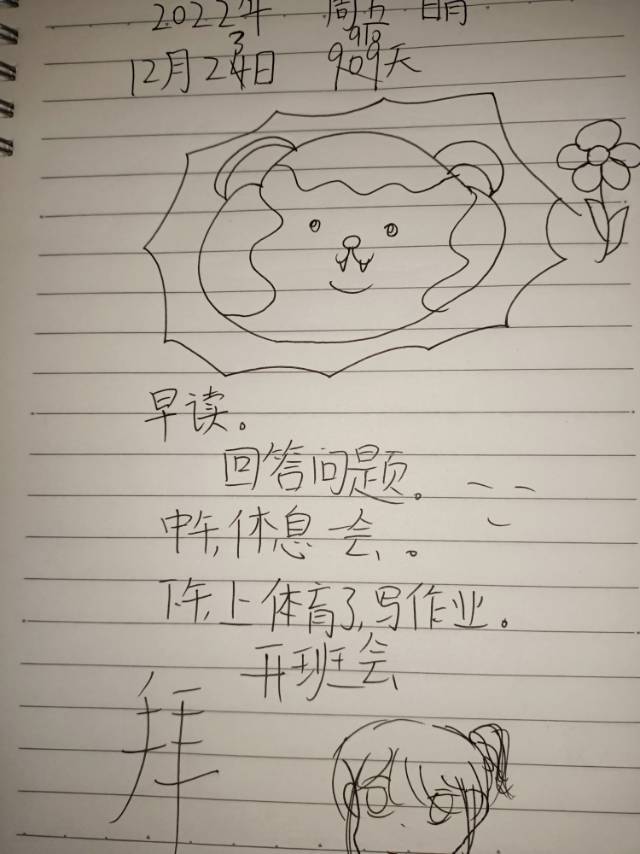 2022年 周五 晴
910
12月23日 909天
早读。
回答问题。
中午,休息一会、。
下午,上体育了,写作业。
开班会
拜